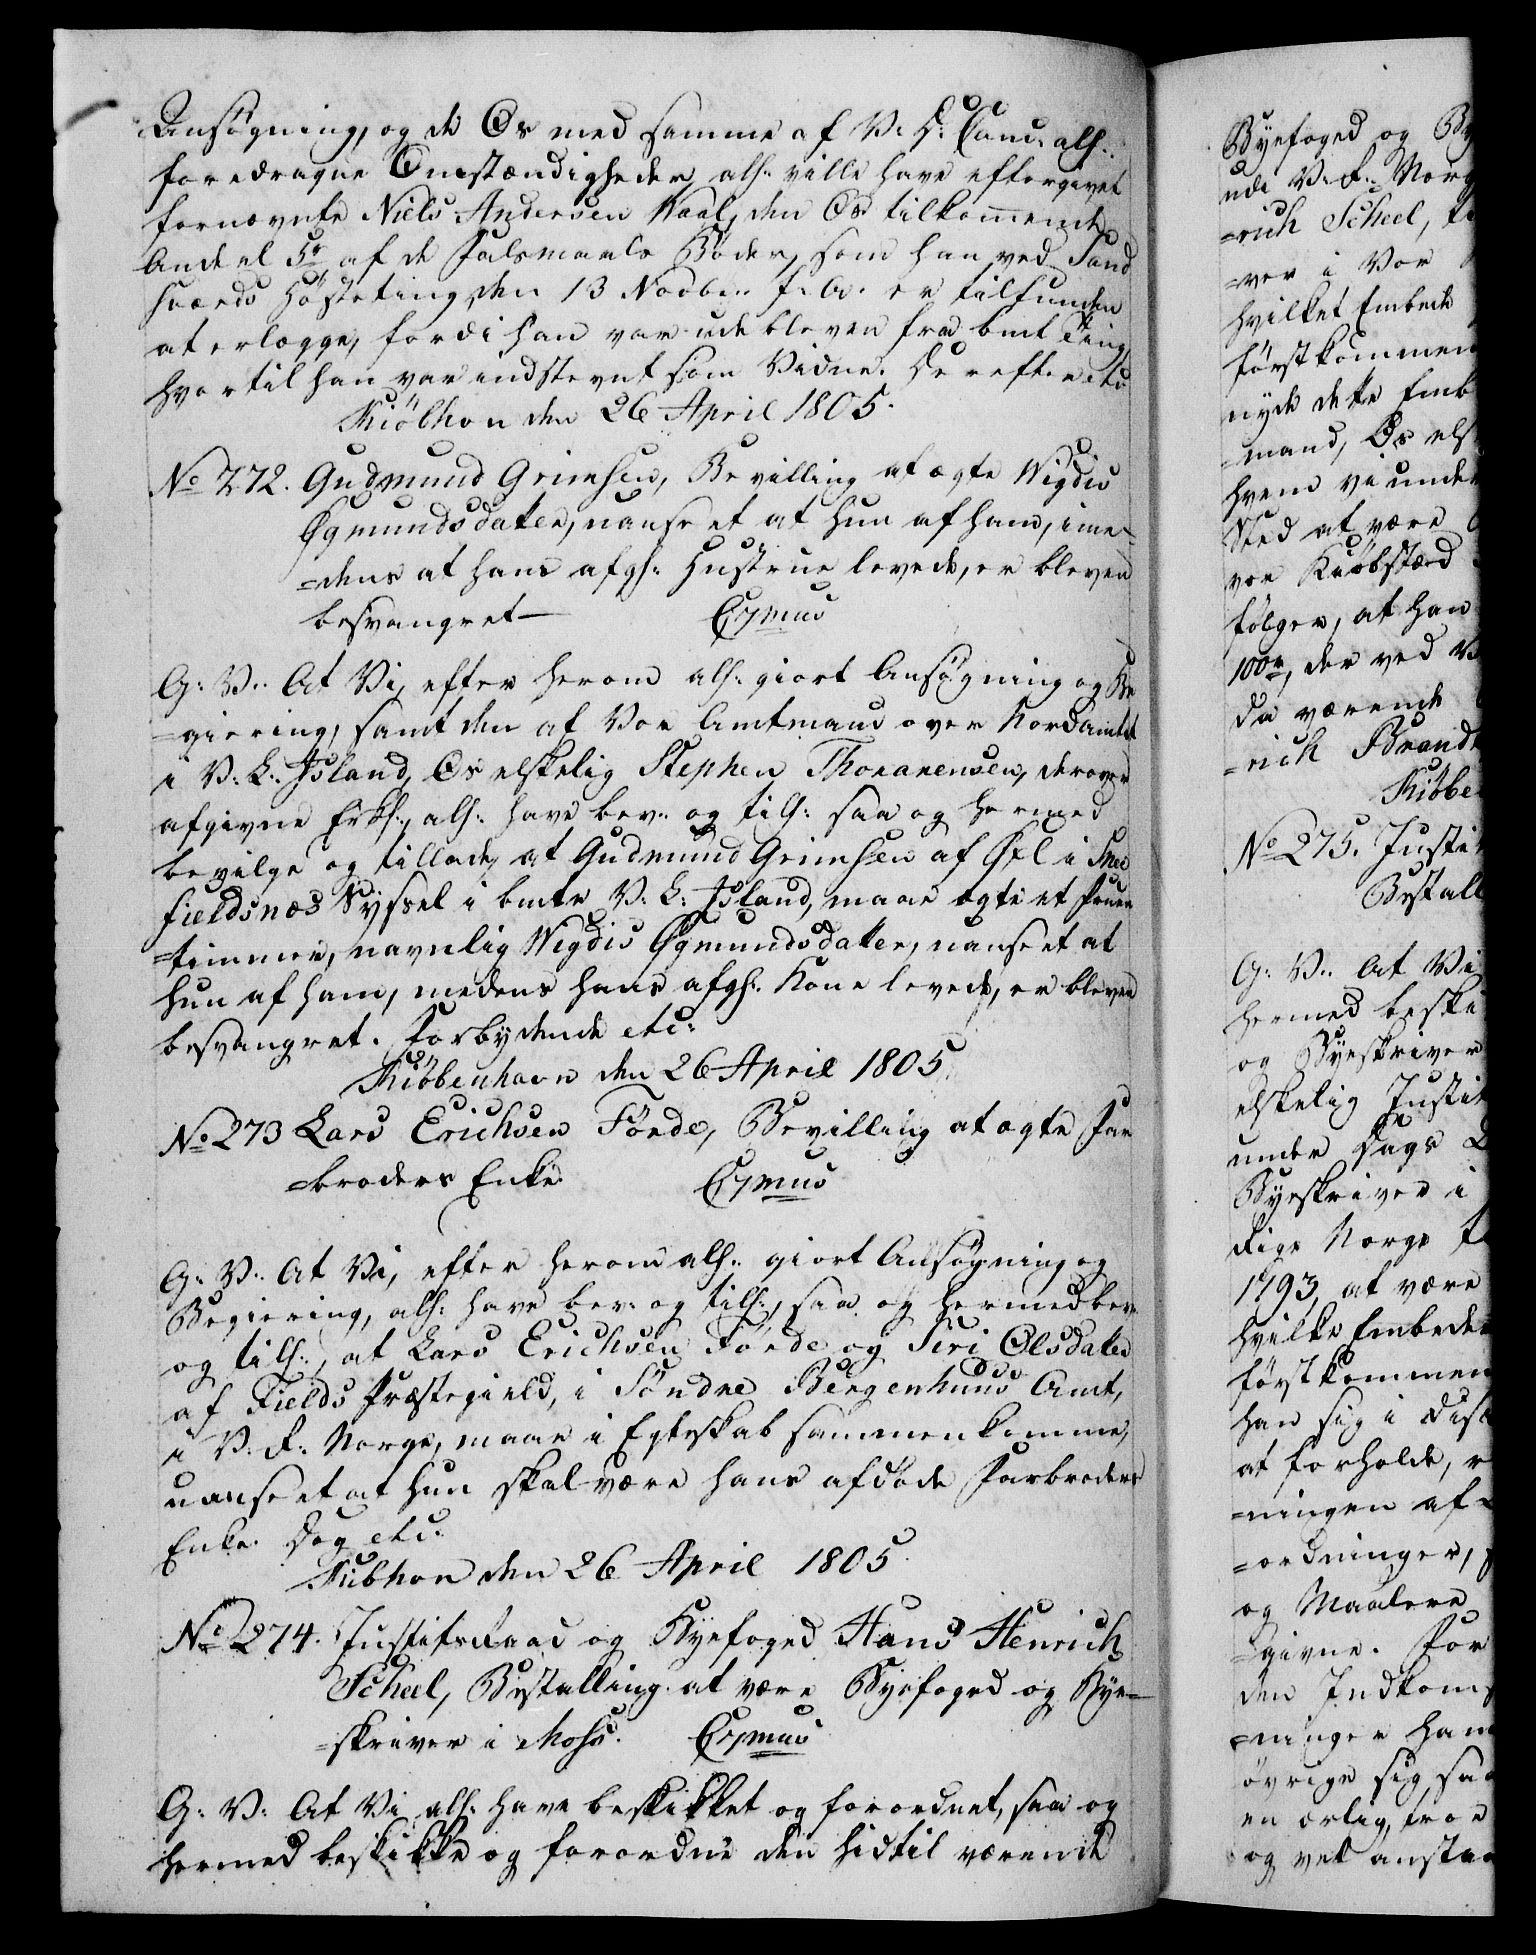 Ansøgning, og de Os med samme af V. D: Canc. alf:
foredragne Omstændigheder, alf: ville have eftergivet
fornævnte Niels Andersen Kaal, den Os tilkommende
Andeel af de Falsmaals Bøder, som han ved Sand
hværds Høsteting den 13 Novbr. f. A. er tilfunden
at erlægge, fordi han var udebleven fra bmte Ting,
hvortil han var indstevnt som Vidne. Derefter etc
Kiøbhvn den 26 April 1805.
No 272. Gudmund Grimsen, Bevilling at ægte Wigdis
Øgmundsdatter, uanseet at hun af ham, ime-
=dens at hans afg: Hustrue levede, er bleven
besvangret
G: V: At Vi, efter herom alf: giort Ansøgning og Be
=giering, samt den af Vor Amtmand over Nordamtet
i V: L: Island, Os elskelig Stephen Thorarensen, derover
afgivne Erkl:, alf: have bev: og till: saa og hermed
bevilge og tillade, at Gudmund Grimsen af i Snee
fieldsnæs Syssel i bmte V: L: Island, maae ægte et Fruen
=timmer, navnlig Wigdis Øgmundsdatter, uanseet at
hun af ham, medens hans afg: Kone levede, er bleven
besvangret. Forbydende etc:
Kiøbenhavn den 26 April 1805
No 273 Lars Erichsen Förde, Bevilling at ægte Far
=broders Enke.
G: V: At Vi, efter herom alf: giort Ansøgning og
Begiering, alf: have bev: og till:, saa og hermed bev:
og till:, at Lars Erichsen Förde og Siri Olsdatter
af Fields Præstegield, i Söndre Bergenhuus Amt,
i V: R: Norge, maae i Egteskab sammenkomme,
uanseet at hun skal være hans afdøde Farbroders
Enke. Dog etc:
Kiöbhvn den 26 April 1805
No 274. Justitsraad og Byefoged Hans Henrich
Scheel, Bestalling at være Byefoged og Bye=
=skriver i Moss.
G: V: At Vi alf: have beskikket og forordnet, saa og
hermed beskikke og forordne den hidtil værende
Byefoged og
udi V. R. Norg
=rich Scheel,
=ver i Vor
hvilket Embede
førstkommen
nyde dette Emb
=mand, Os els
hvem vi under
Sted at være
vor Kiøbstæd
følger, at han
100 r, der ved
da værende
=rich Brandt
Kiøbe
No 275. Justi
Bestall
G: V: At Vi
hermed beski
og Byeskriver
elskelig Justit
under Dags
Byeskriver i
Rige Norge
1793, at være
hvilke Embeder
førstkommen
han sig i disse
at forholde,
=ningen af
=ordninger,
og Maalere
givne. For
den Indkoms
=ninger ham
øvrige sig saa
en ærlig, troe
og vel anstaa